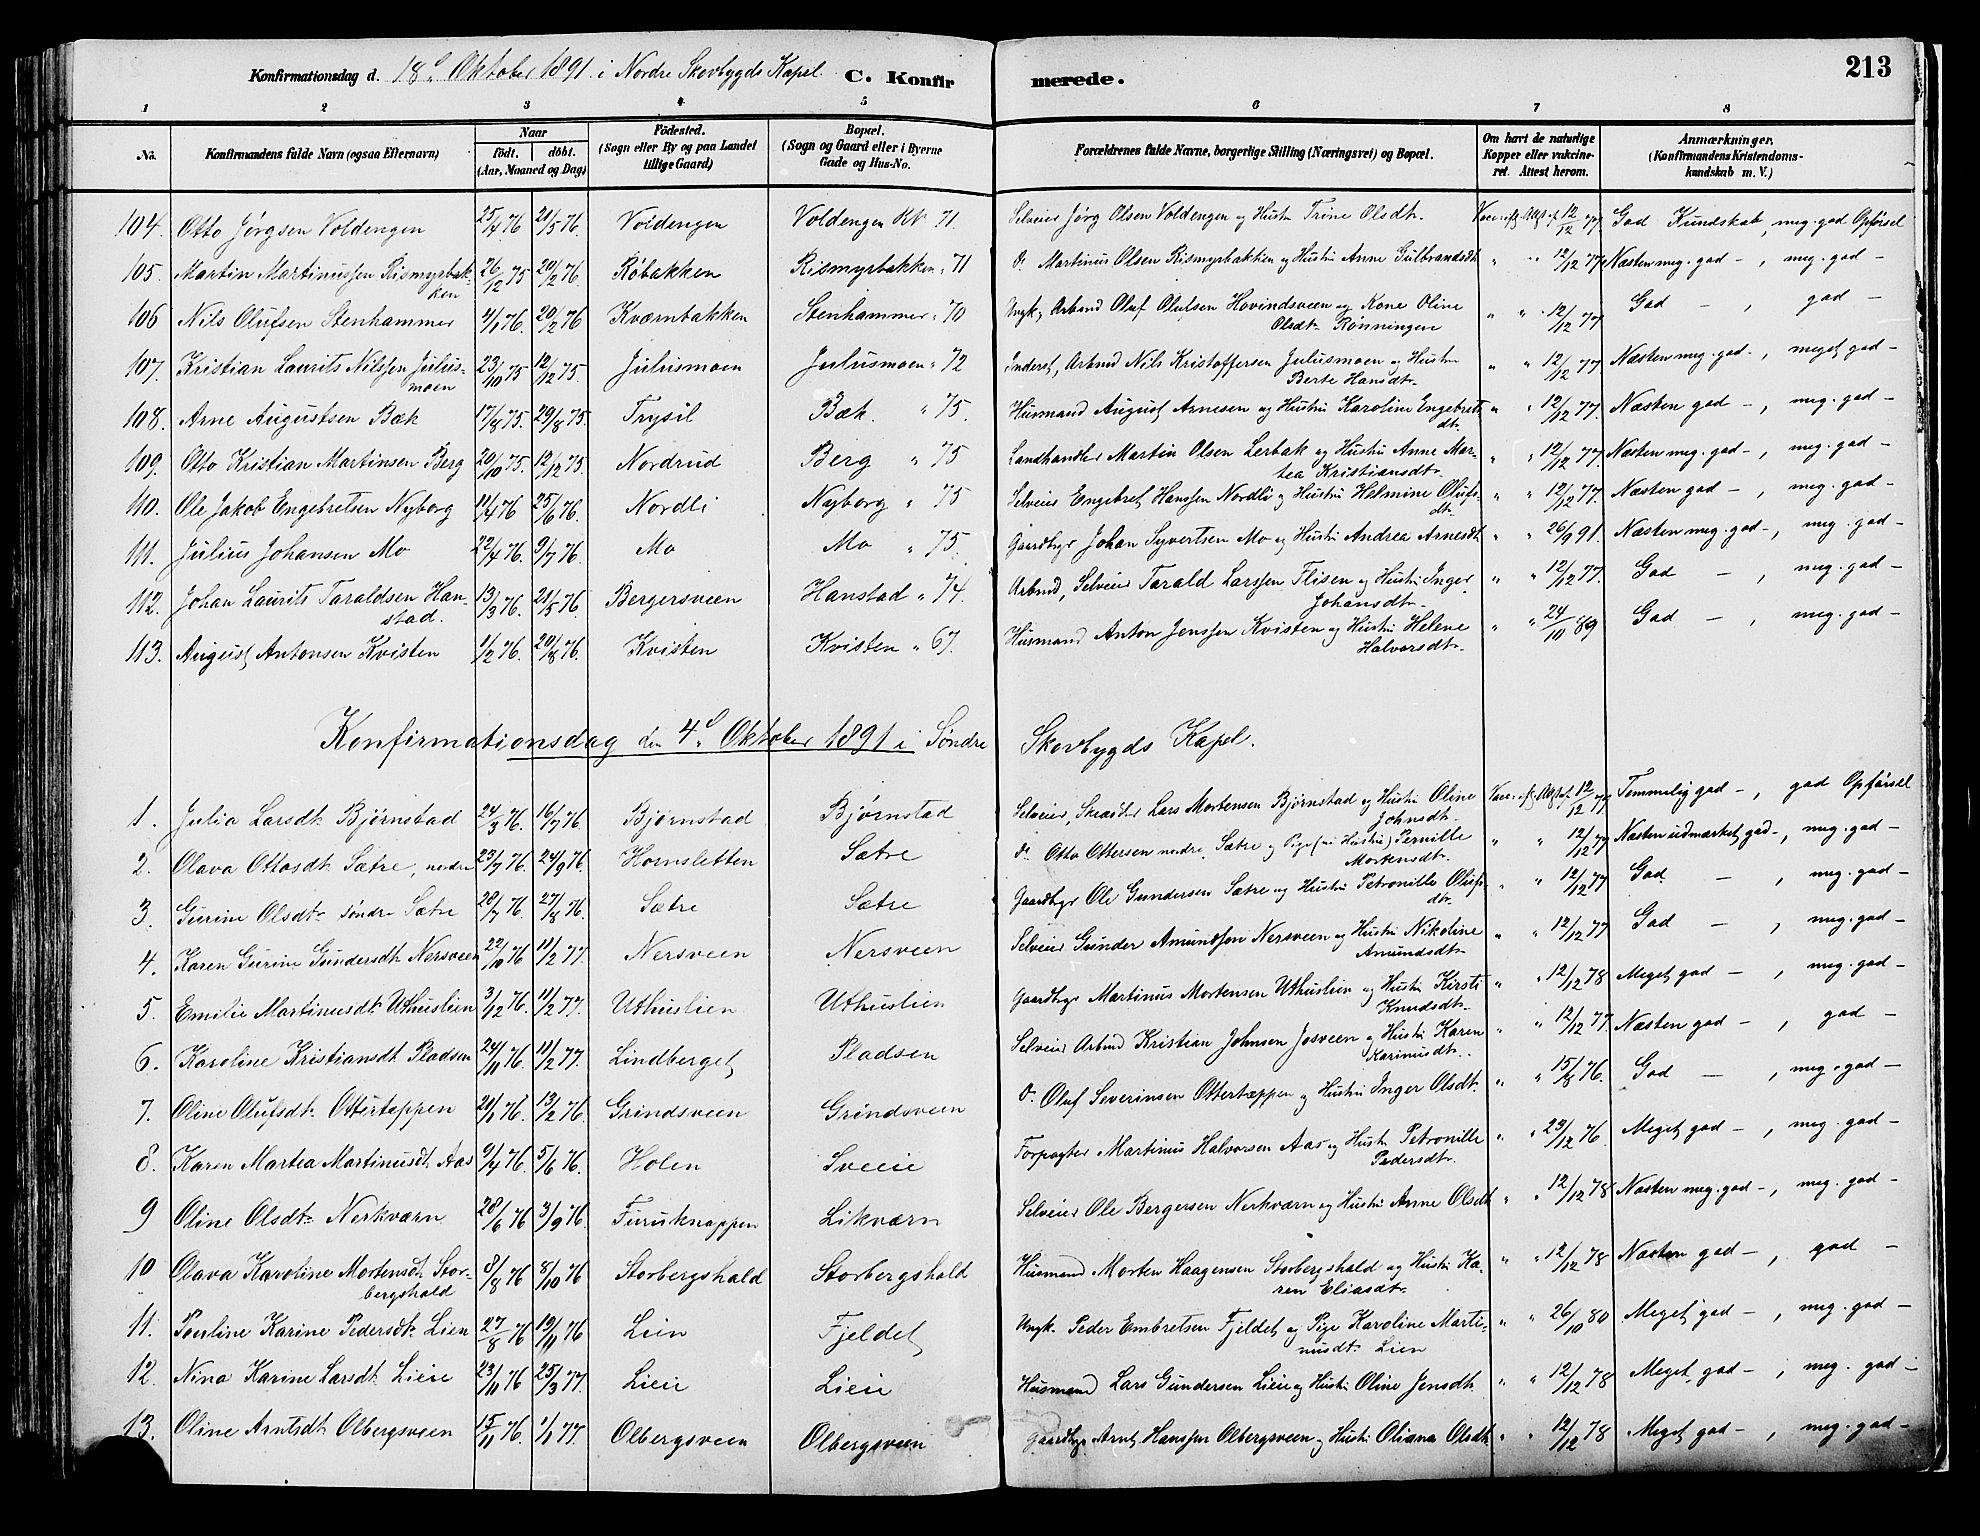 213
Konfirmationsdag d. 18d Oktober 1891 i Nordre Skovbygds Kapel. C. Konfirmerede.
1 2 3 4 5 6 7 8
No. Konfirmandens fulde Navn (ogsaa Efternavn) Naar født. døbt. (Aar, Maaned og Dag) Fødested. (Sogn eller By og paa Landet tillige Gaard) Bopæl. (Sogn og Gaard eller i Byerne Gade og Hus-No. Forældrenes fulde Navne, borgerlige Stilling (Næringsvei) og Bopæl. Om havt de naturlige Kopper eller vakcineret. Attest herom. Anmærkninger. (Konfirmandens Kristendomskundskab m. V.)
104. Otto Jørgsen Voldengen 25/4 76 21/5 76. Voldengen Voldengen Kr. 71. Selveier Jørg Olsen Voldengen og Hustr Trine Olsdt. Vacc. Att. af 12/12 77 God Kundskab, meg. god Opførsel
105. Martin Martinussen Rismyrbakken 26/12 75 20/2 76. Røbakken Rismyrbakken " 71 Do Martinus Olsen Rismyrbakken og Hustru Anne Gulbrandsdt " " 12/12 77 Næsten meg. god – , meg. god –
106 Nils Olufsen Stenhammer 4/1 76. 20/2 76 Kværnbakken Stenhammer " 70 Ungk, Arbmd Oluf Olufsen Hovindsveen og Kone Oline Olsdt. Rønningen " " 12/12 77 God – , god –
107. Kristian Laurits Nilssen Juliusmoen 23/10 75 12/12 75. Juliusmoen Juliusmoen " 72 Inderst, Arbmd Nils Kristoffersen Juliusmoen og Hustru Berte Hansdt. " " 12/12 77 Næsten meg. god – , meget god –
108. Arne Augustsen Bæk 17/8 75. 29/8 75. Trysil Bæk. " 75. Husmand August Arnesen og Hustru Karoline Engebretsdt. " " 12/12 77. Næsten god – , meg. god –
109. Otto Kristian Martinsen Berg 20/10 75. 12/12 75. Nordrud Berg " 75 Landhandler Martin Olsen Lerbak og Hustru Anne Martea Kristiansdt. " " 12/12 77. Næsten meg. god – , meg. god –
110. Ole Jakob Engebretsen Nyborg 11/4 76 25/6 76. Nordli Nyborg " 75 Selveier Engebret Hanssen Nordli og Hustru Helmine Olufsdt. " " 12/12 77. Næsten god – , meg. god –
111. Julius Johansen Mo 22/4 76. 9/7 76. Mo Mo " 75. Gaardbgr Johan Syvertsen Mo og Hustru Andrea Arnesdt " " 26/9 91. Næsten meg. god –, meg. god –
112. Johan Laurits Taraldsen Hanstad. 13/3 76. 21/5 76. Bergersveen Hanstad " 74. Arbmd, Selveier Tarald Larssen Flisen og Hustru Inger Johansdt. " " 12/12 77. God – , meg. god –
113. August Antonsen Kvisten 1/2 76. 20/8 76. Kvisten Kvisten " 67. Husmand Anton Jenssen Kvisten og Hustru Helene Halvorsdt. " " 24/10 89 God – , meg. god –
Konfirmationsdag den 4d Oktober 1891 i Søndre Skovbygds Kapel.
1. Julia Larsdt. Bjørnstad 24/3 76. 16/7 76. Bjørnstad Bjørnstad Selveier, Skrædder Lars Mortensen Bjørnstad og Hustru Oline Johnsdt. Vacc. Att. af 12/12 77 Temmelig god – , god Opførsel
2. Olava Ottosdt. Sætre, nordre 23/7 76. 24/9 76. Hornsletten Sætre Do Otto Ottersen nordre Sætre og Pige (nu Hustru) Pernille Mortensdt. " " 12/12 77 Næsten udmærket god –, meg. god –
3. Gurine Olsdt. søndre Sætre 28/7 76. 27/8 76. Sætre Sætre Gaardbgr Ole Gundersen Sætre og Hustru Petronille Olufsdt. " " 12/12 77 God – , meg. god –
4. Karen Gurine Gundersdt. Nersveen 22/10 76 11/2 77. Nersveen Nersveen Selveier Gunder Amundsen Nersveen og Hustru Nikoline Amundsdt. " " 12/12 77 God – , meg. god –
5. Emilie Martinusdt. Uthuslien 3/12 76. 11/2 77. Uthuslien Uthuslien Gaardbgr Martinus Mortensen Uthuslien og Hustru Kirsti Knudsdt. " " 12/12 78 Meget god – , meg. god –
6. Karoline Kristiansdt. Pladsen 24/11 76. 11/2 77. Lindberget Pladsen Selveier Arbmd Kristian Johnsen Josveen og Hustru Karen Karinusdt. " " 12/12 77. Næsten god – , god –
7. Oline Olufsdt. Ottertappen 20/1 76. 13/2 76. Grindsveen Grindsveen Do Oluf Severinsen Ottertappen og Hustru Inger Olsdt. " " 15/8 76. God – , meg. god –
8. Karen Martea Martinusdt. Aas 9/4 76. 5/6 76. Holen Sveie Forpagter Martinus Halvorsen Aas og Hustr Petronille Pedersdt. " " 23/12 76. Meget god – , meg. god –
9 Oline Olsdt. Nerkværn 28/6 76 3/9 76. Furuknappen Likværn Selveier Ole Bergersen Nerkværn og Hustru Anne Olsdt " " 12/12 78 Næsten meg. god – , meg. god –
10 Olava Karoline Mortensdt. Storbergshald 8/8 76 8/10 76 Storbergshald Storbergshald Husmand Morten Haagensen Storbergshald og Hustru Karen Eliasdt. " " 12/12 78 Næsten god – , god –
11. Pouline Karine Pedersdt. Lien 27/8 76 19/11 76 Lien Fjeldet Ungk. Peder Embretsen Fjeldet og Pige Karoline Martinusdt. Lien " " 26/10 80 Meget god – , meg. god –
12. Nina Karine Larsdt. Lieie 23/11 76 25/3 77. Lieie Lieie Husmand Lars Gundersen Lieie og Hustru Oline Jensdt. " " 12/12 78 Meget god – , meg. god –
13. Oline Arntsdt. Olbergsveen 15/11 76. 1/1 77. Olbergsveen Olbergsveen Gaardbgr Arnt Hanssen Olbergsveen og Hustru Oliana Olsdt. " " 12/12 78 Meget god – , meg. god –